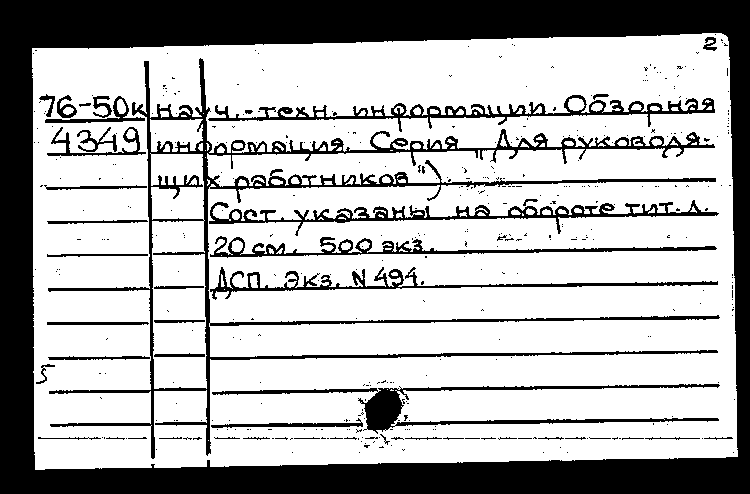 2
76-50к науч.-техн. информации. Обзорная
4349 информация. Серия „Для руководя-
щих работников")
Сост. указаны на обороте тит. л.
20 см. 500 экз.
ДСП. Экз. N 494.
5